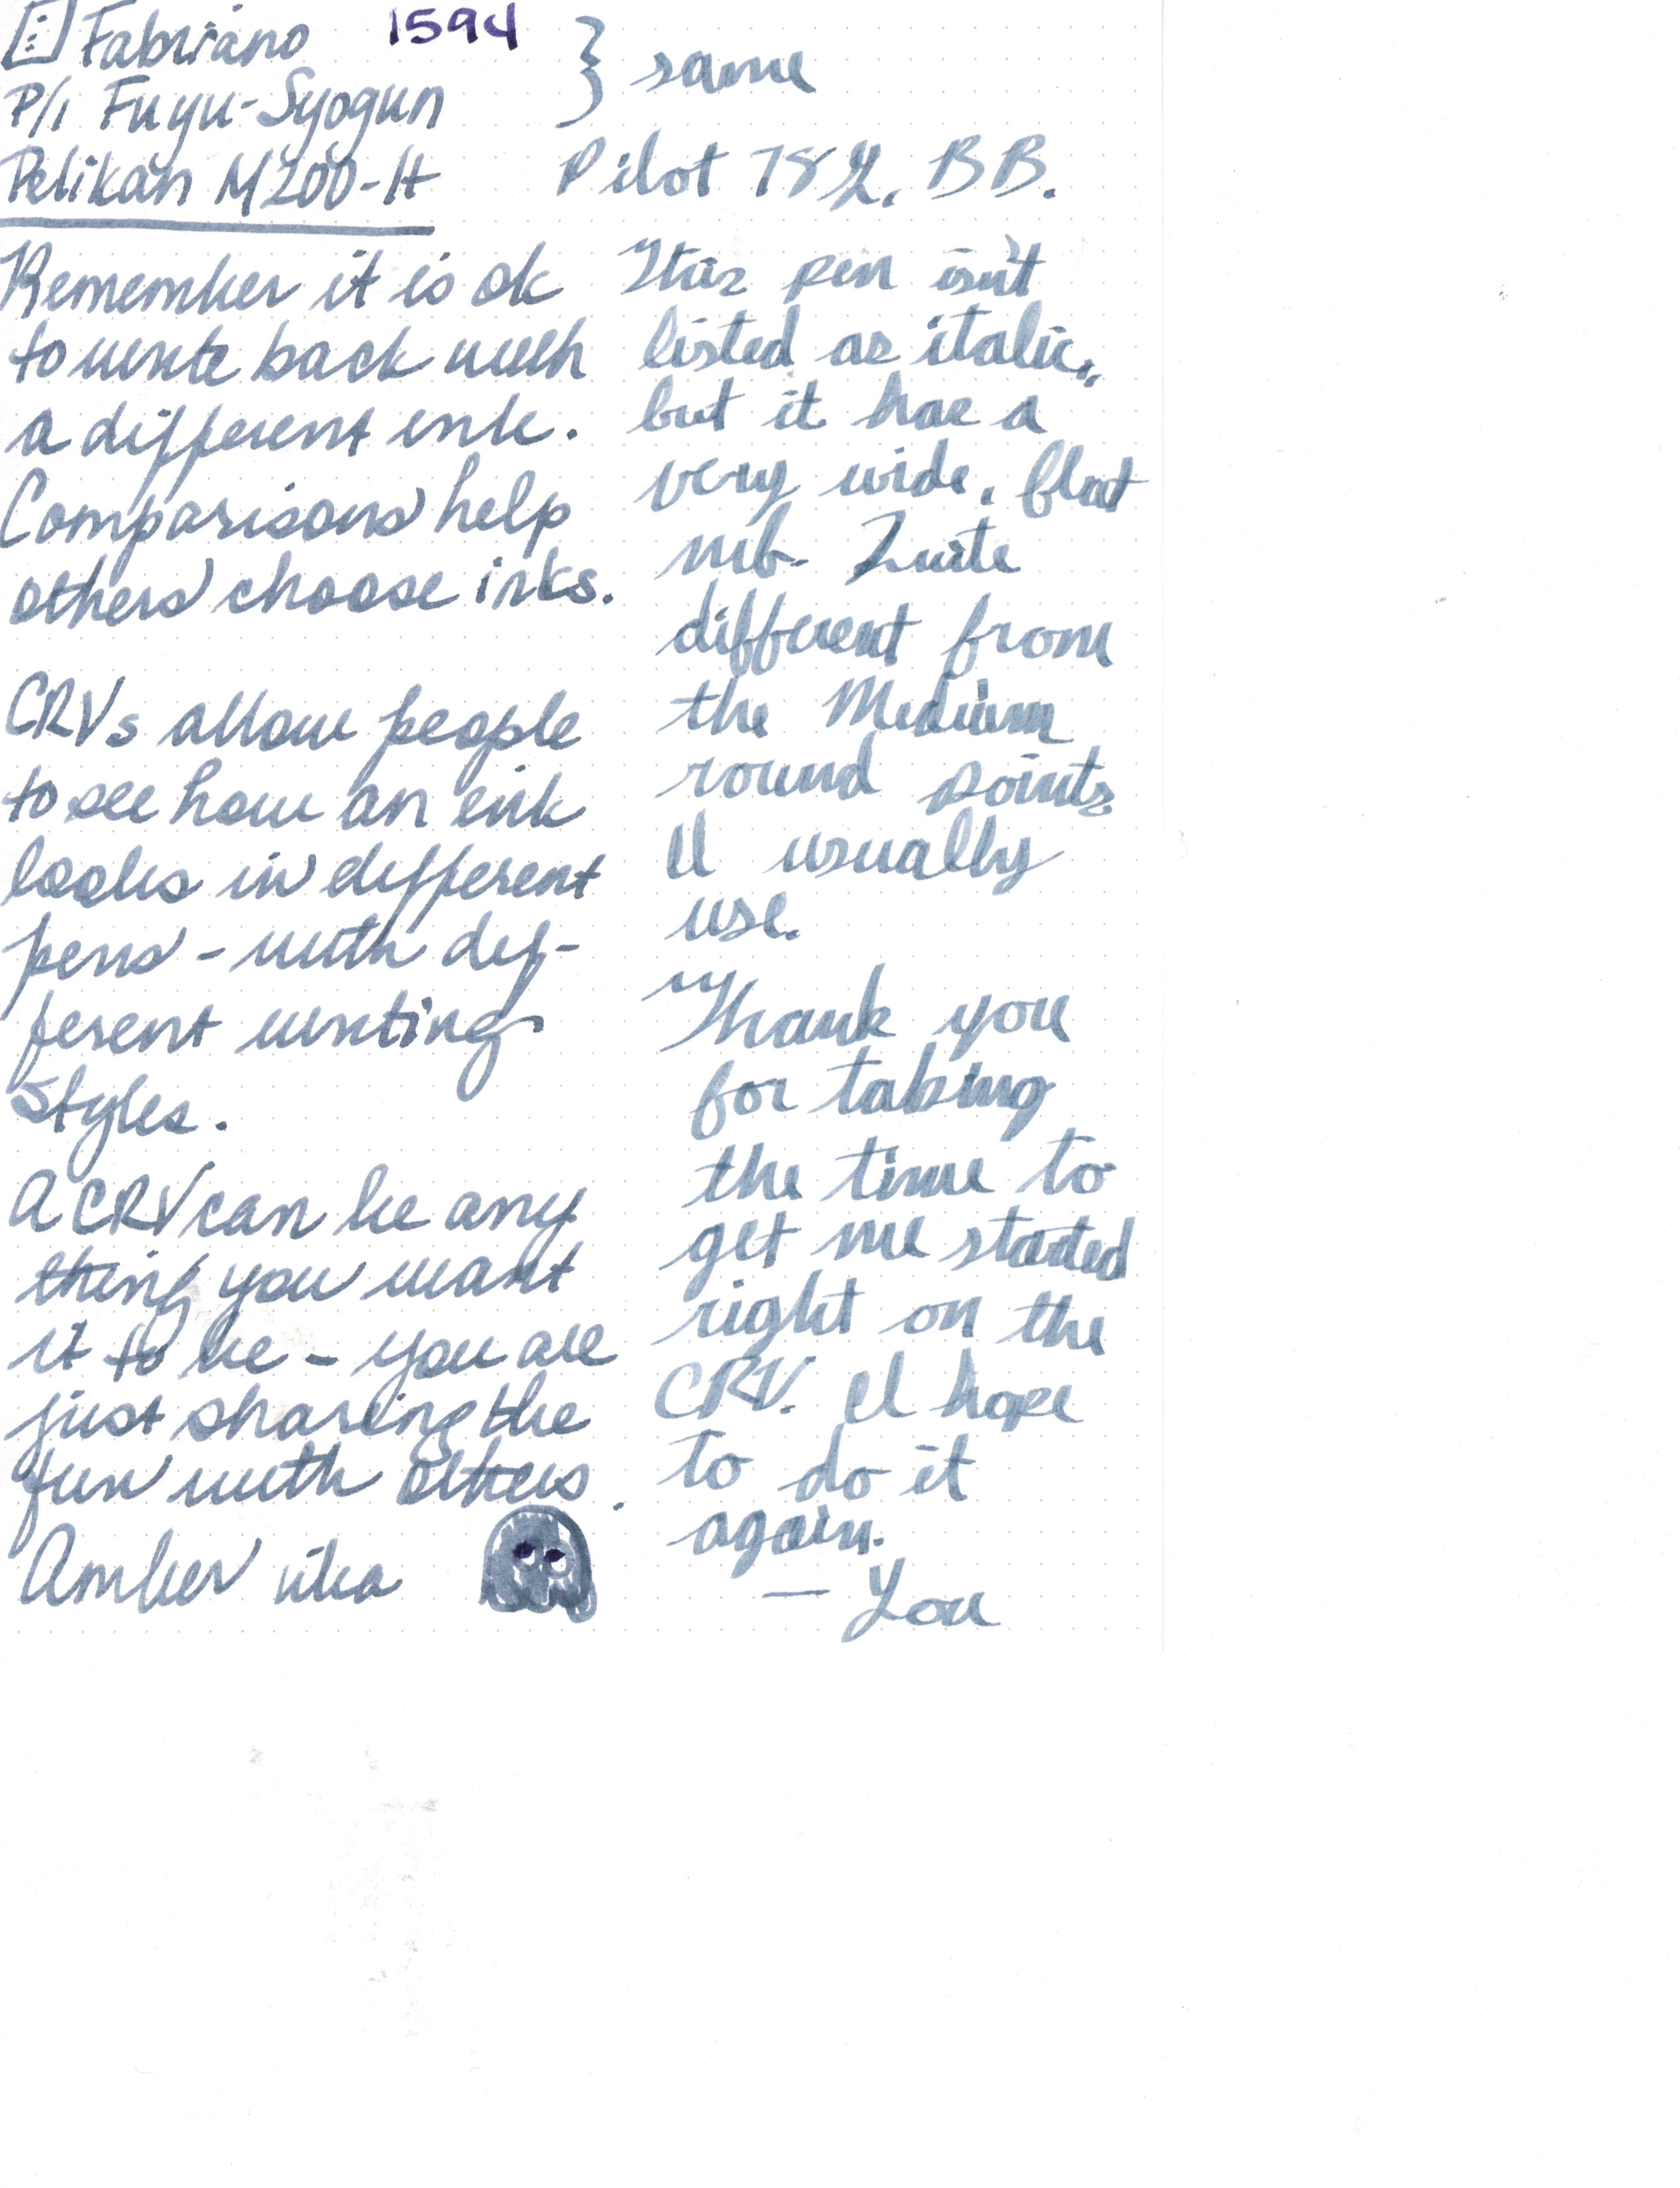 Fabriano 1594
P/i Fuyu-Syogun
Pelikan M200-It
Remember it is ok
to write back with
a different ink.
Comparisons help
others choose inks.
CRVs allow people
to see how an ink
looks in different
pens - with dif-
ferent writing
styles.
A CRV can be any
thing you want
it to be - you are
just sharing the
fun with others.
Amber
} same
Pilot 78G, BB.
This pen isn't
listed as italic,
but it has a
very wide, flat
nib. Quite
different from
the Medium
round points
I usually
use.
Thank you
for taking
the time to
get me started
right on the
CRV. I hope
to do it
again.
— You